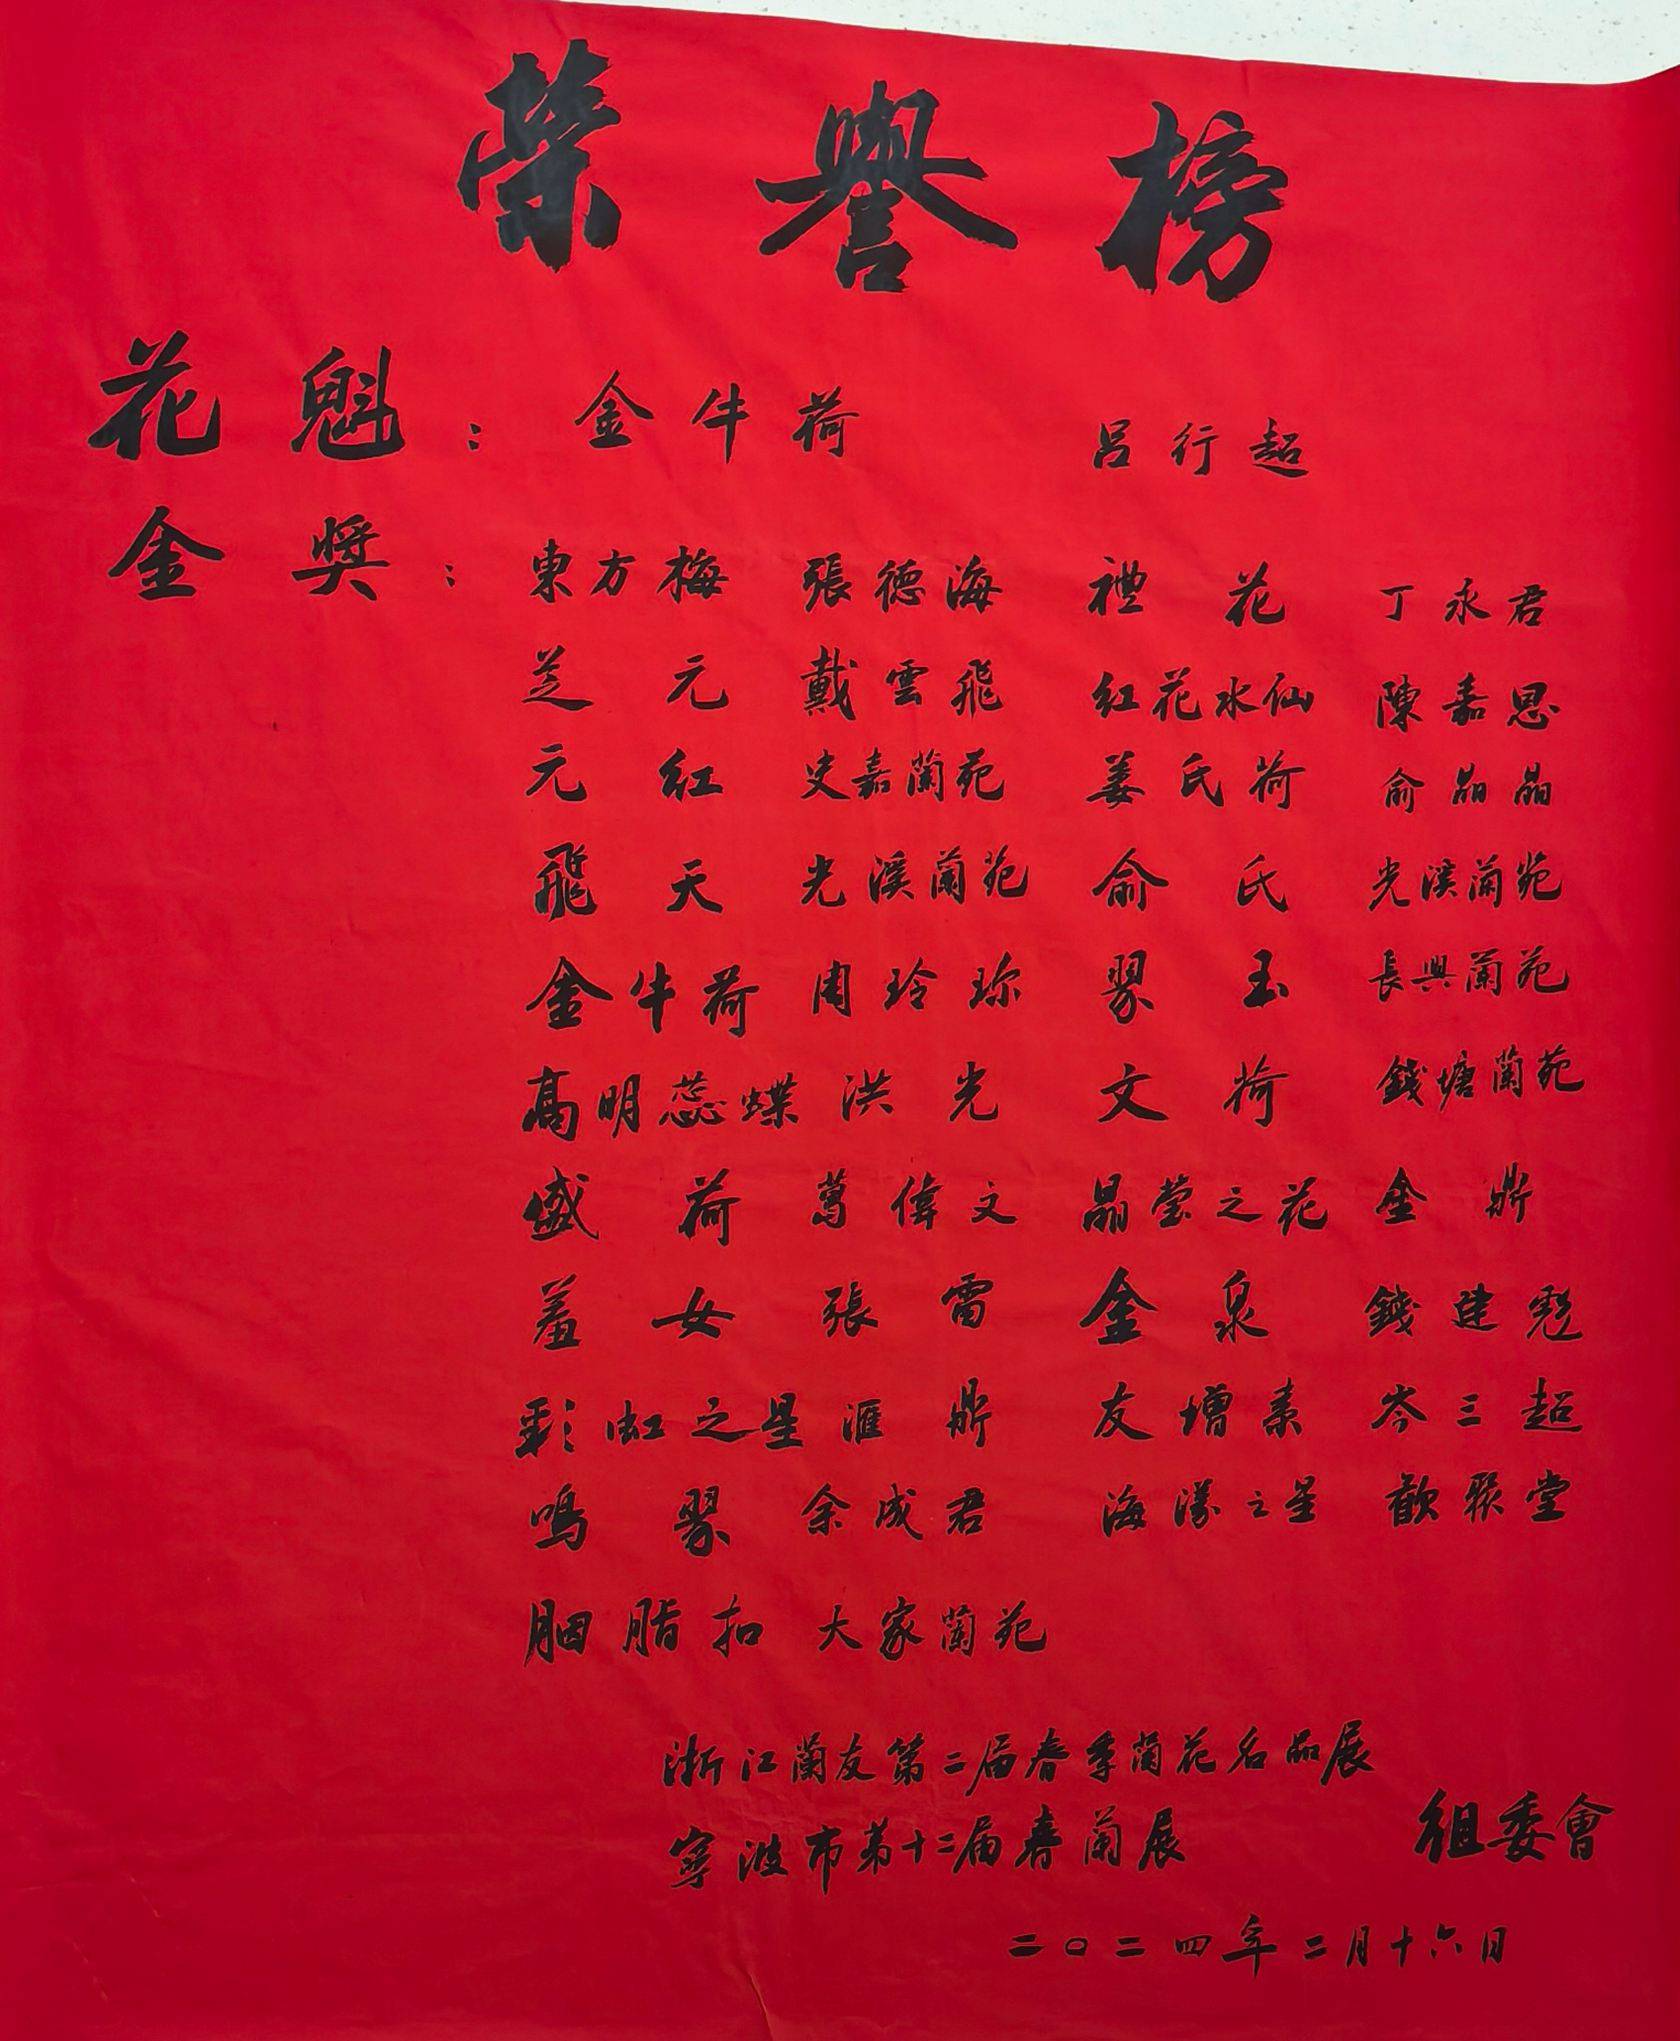 榮譽榜
花魁：金牛荷 呂行超
金獎：東方梅 張德海 禮花 丁永君
芝元 戴雲飛 紅花水仙 陳嘉恩
元紅 史嘉蘭苑 姜氏荷 俞晶晶
飛天 光溪蘭苑 俞氏 光溪蘭苑
金牛荷 周玲珍 翠玉 長興蘭苑
高明蕊蝶 洪光 文荷 錢塘蘭苑
盛荷 葛偉文 晶莹之花 金鼎
羞女 張雷 金泉 錢建彪
彩虹之星 滙鼎 友增素 岑三超
鳴翠 余成君 海漾之星 歡聚堂
胭脂扣 大家蘭苑
浙江蘭友第二届春季蘭花名品展
寧波市第十二届春蘭展 組委會
二〇二四年二月十六日